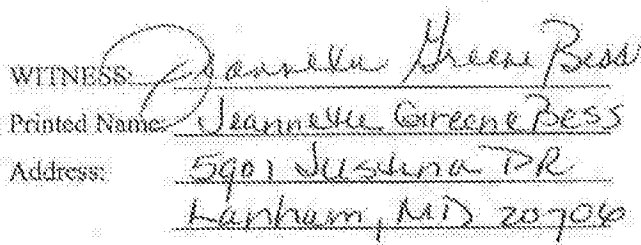 WITNESS: Jeannette Greene Bess
Printed Name: Jeannette Greene Bess
Address: 5901 Justina DR
Lanham, MD 20706